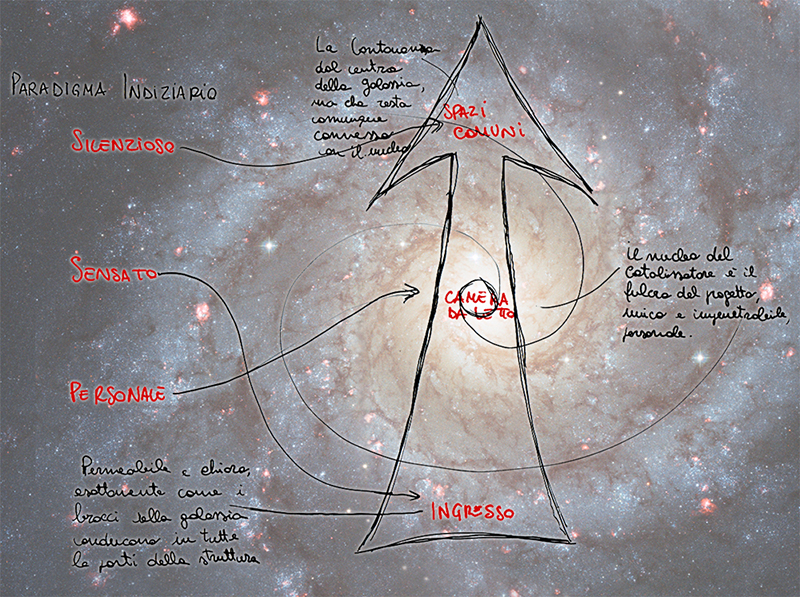 PARADIGMA INDIZIARIO
La lontananza
dal centro
della galassia,
ma che resta
comunque
connessa
con il nucleo
SPAZI
COMUNI
SILENZIOSO
SENSATO
il nucleo del
catalizzatore è il
fulcro del progetto,
unico e impenetrabile,
personale.
CAMERA
DA LETTO
PERSONALE
Permeabile e chiara,
esattamente come i
bracci della galassia
conducono in tutte
le parti della struttura
INGRESSO